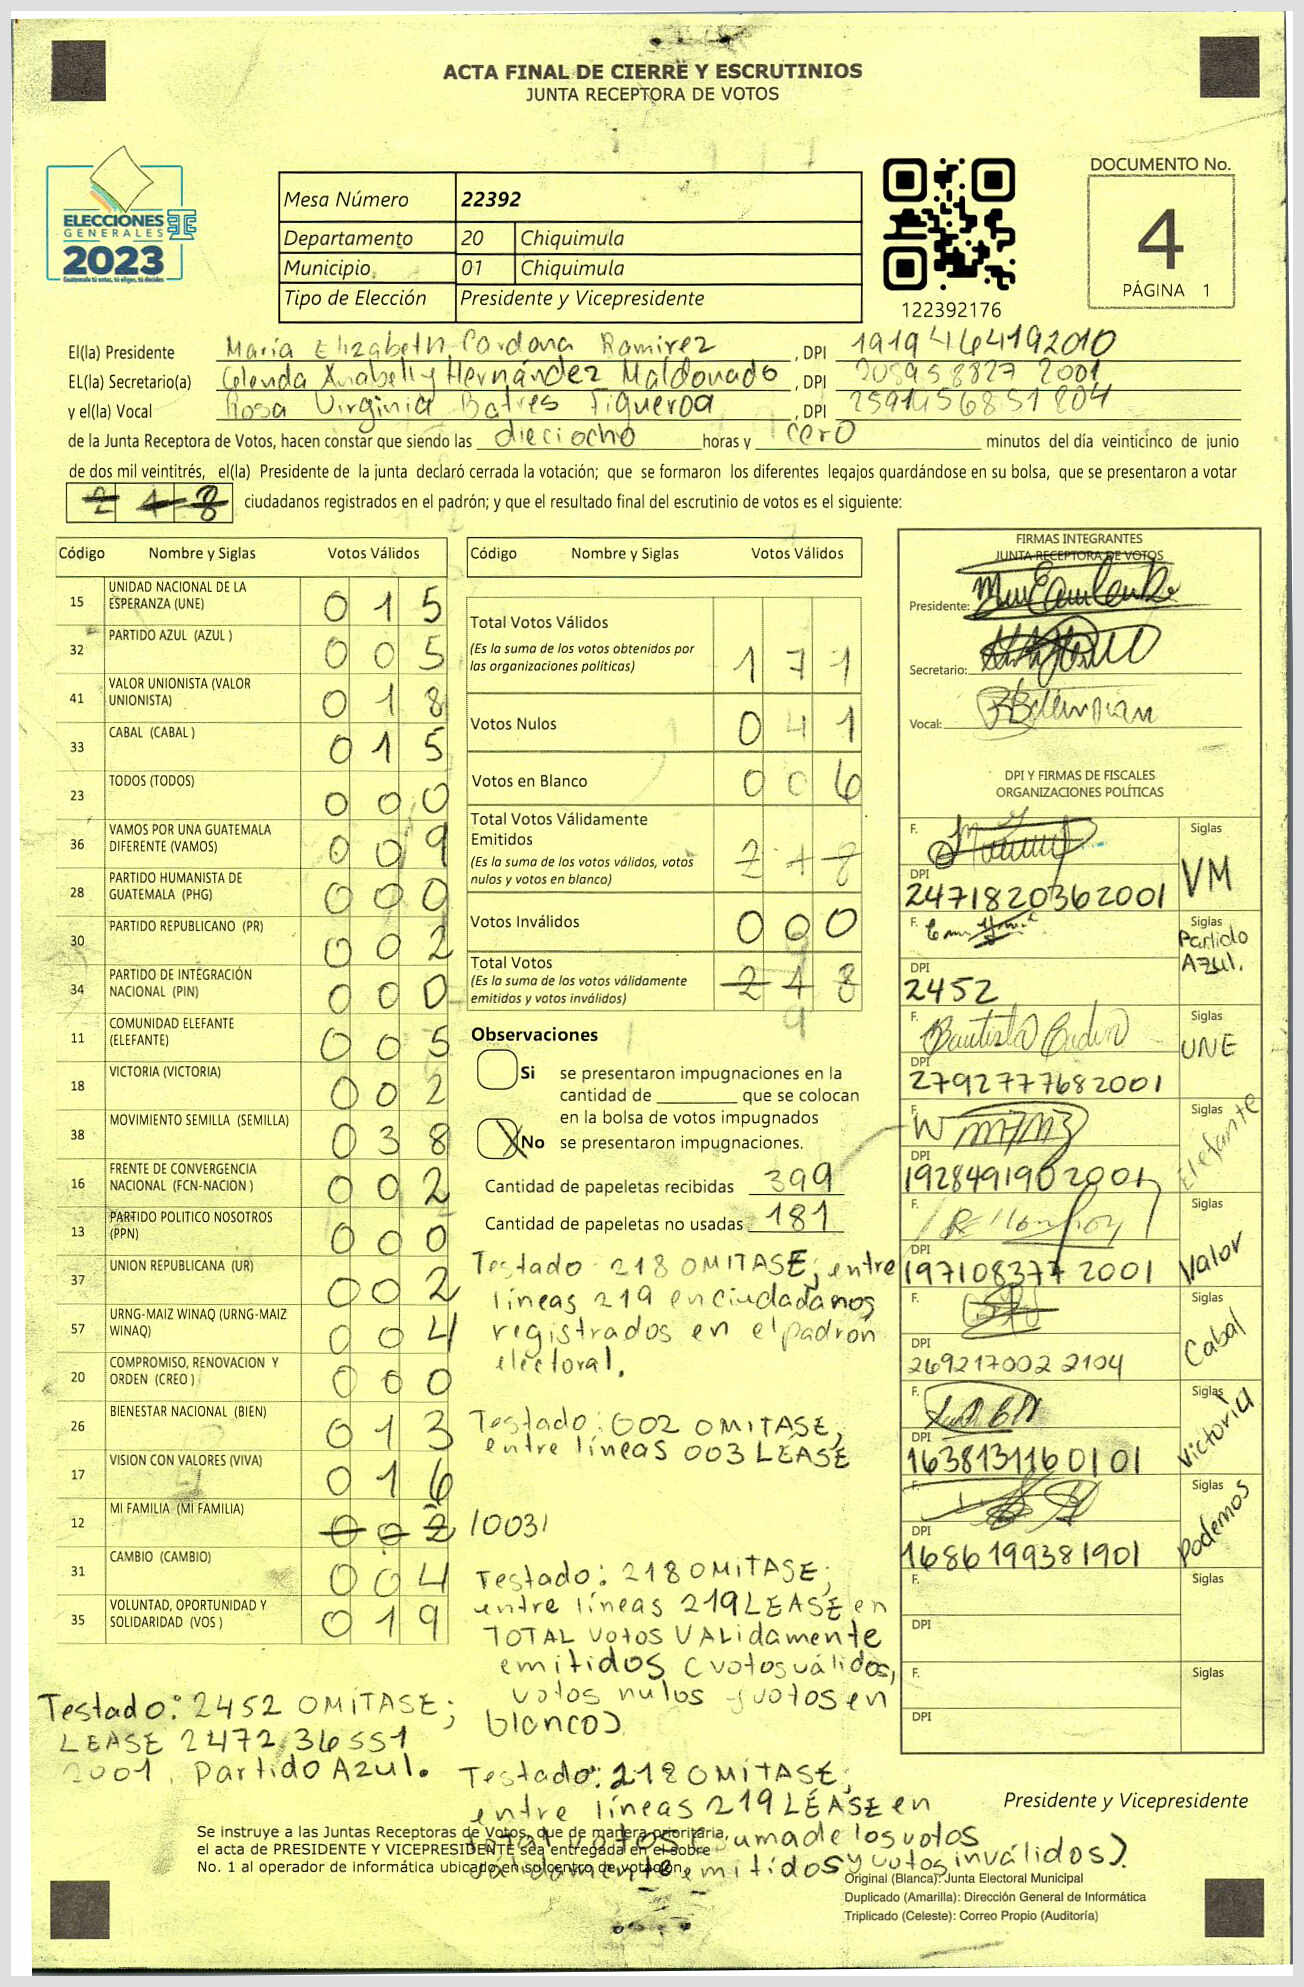 ACTA FINAL DE CIERRE Y ESCRUTINIOS
JUNTA RECEPTORA DE VOTOS
ELECCIONES
GENERALES
2023
Guatemala tú votas, tú eliges, tú decides
Mesa Número 22392
Departamento 20 Chiquimula
Municipio 01 Chiquimula
Tipo de Elección Presidente y Vicepresidente
122392176
DOCUMENTO No.
4
PÁGINA 1
El(la) Presidente María Elizabeth Cardona Ramirez, DPI 1919464192010
EL(la) Secretario(a) Glenda Anabelly Hernández Maldonado, DPI 2059588272001
y el(la) Vocal Rosa Virginia Batres Figueroa, DPI
de la Junta Receptora de Votos, hacen constar que siendo las dieciocho horas y cero minutos del día veinticinco de junio
de dos mil veintitrés, el(la) Presidente de la junta declaró cerrada la votación; que se formaron los diferentes legajos guardándose en su bolsa, que se presentaron a votar
218 ciudadanos registrados en el padrón; y que el resultado final del escrutinio de votos es el siguiente:
Código Nombre y Siglas Votos Válidos
15 UNIDAD NACIONAL DE LA ESPERANZA (UNE) 015
32 PARTIDO AZUL (AZUL ) 005
41 VALOR UNIONISTA (VALOR UNIONISTA) 018
33 CABAL (CABAL ) 015
23 TODOS (TODOS) 000
36 VAMOS POR UNA GUATEMALA DIFERENTE (VAMOS) 009
28 PARTIDO HUMANISTA DE GUATEMALA (PHG) 000
30 PARTIDO REPUBLICANO (PR) 002
34 PARTIDO DE INTEGRACIÓN NACIONAL (PIN) 000
11 COMUNIDAD ELEFANTE (ELEFANTE) 005
18 VICTORIA (VICTORIA) 002
38 MOVIMIENTO SEMILLA (SEMILLA) 038
16 FRENTE DE CONVERGENCIA NACIONAL (FCN-NACION ) 002
13 PARTIDO POLITICO NOSOTROS (PPN) 000
37 UNION REPUBLICANA (UR) 002
57 URNG-MAIZ WINAQ (URNG-MAIZ WINAQ) 004
20 COMPROMISO, RENOVACION Y ORDEN (CREO ) 000
26 BIENESTAR NACIONAL (BIEN) 013
17 VISION CON VALORES (VIVA) 016
12 MI FAMILIA (MI FAMILIA) 002 /003/
31 CAMBIO (CAMBIO) 004
35 VOLUNTAD, OPORTUNIDAD Y SOLIDARIDAD (VOS ) 019
Testado: 2452 OMITASE;
LEASE 2472 36551
2001, Partido Azul.
Código Nombre y Siglas Votos Válidos
Total Votos Válidos 171
(Es la suma de los votos obtenidos por
las organizaciones políticas)
Votos Nulos 041
Votos en Blanco 006
Total Votos Válidamente
Emitidos 218
(Es la suma de los votos válidos, votos
nulos y votos en blanco)
Votos Inválidos 000
Total Votos 218
(Es la suma de los votos válidamente
emitidos y votos inválidos)
Observaciones
Si se presentaron impugnaciones en la
cantidad de ____ que se colocan
en la bolsa de votos impugnados
X No se presentaron impugnaciones.
Cantidad de papeletas recibidas 399
Cantidad de papeletas no usadas 181
Testado 218 OMITASE; entre
líneas 219 en ciudadanos
registrados en el padrón
electoral.
Testado: 002 OMITASE;
entre líneas 003 LÉASE
Testado: 218 OMITASE;
entre líneas 219 LEASE en
TOTAL votos VALidamente
emitidos (votos válidos,
votos nulos y votos en
blanco)
Testado: 218 OMITASE;
entre líneas 219 LÉASE en
total votos (suma de los votos
válidamente emitidos y votos inválidos).
FIRMAS INTEGRANTES
JUNTA RECEPTORA DE VOTOS
Presidente:
Secretario:
Vocal:
DPI Y FIRMAS DE FISCALES
ORGANIZACIONES POLÍTICAS
F. Siglas VM
DPI 2471820362001
F. Siglas Partido Azul.
DPI 2452
F. Siglas UNE
DPI 2792777682001
F. Siglas Elefante
DPI 1928491902001
F. Siglas Valor
DPI 1971083772001
F. Siglas Cabal
DPI 2692170022104
F. Siglas Victoria
DPI 1638131160101
F. Siglas Podemos
DPI 1686199381901
F. Siglas
DPI
F. Siglas
DPI
Presidente y Vicepresidente
Se instruye a las Juntas Receptoras de Votos, que de manera prioritaria,
el acta de PRESIDENTE Y VICEPRESIDENTE sea entregada en el sobre
No. 1 al operador de informática ubicado en su centro de votación.
Original (Blanca): Junta Electoral Municipal
Duplicado (Amarilla): Dirección General de Informática
Triplicado (Celeste): Correo Propio (Auditoría)